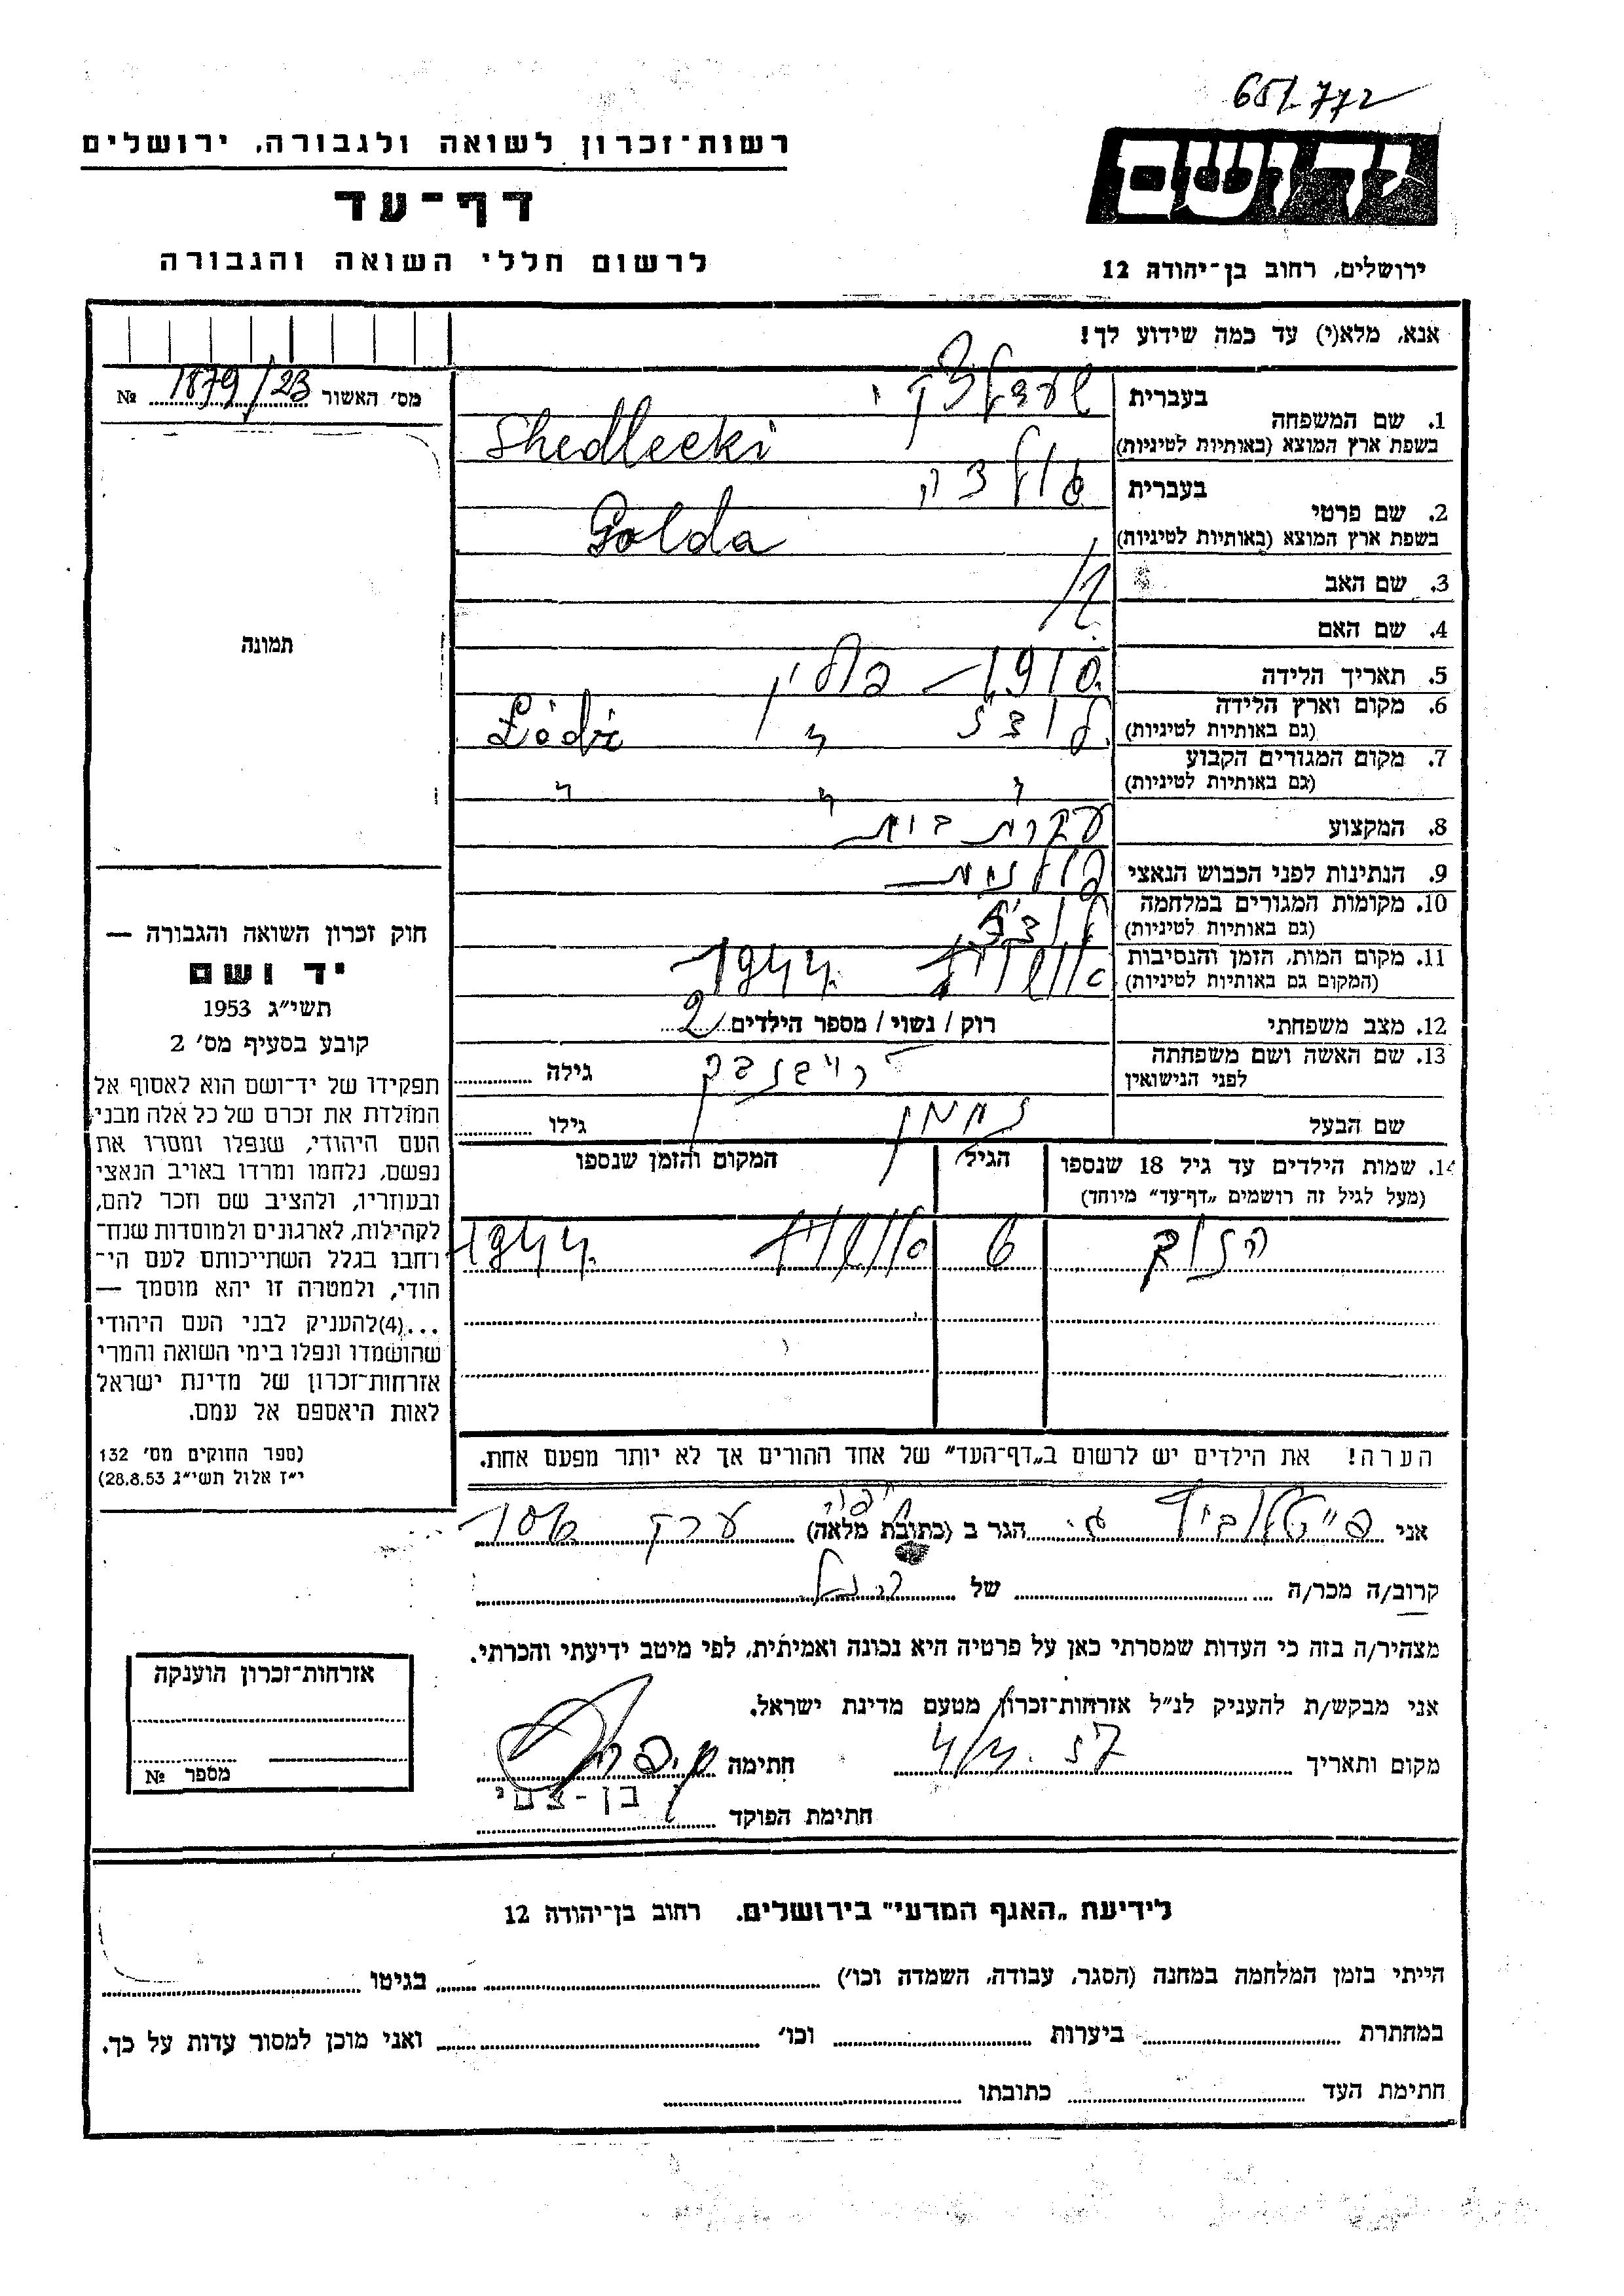 651/772
רשות-זכרון לשואה ולגבורה, ירושלים
יד ושם
דף-עד
לרשום חללי השואה והגבורה
ירושלים, רחוב בן-יהודה 12
אנא, מלא(י) עד כמה שידוע לך!
מס' האשור 1879/23 №
1. שם המשפחה בעברית
בשפת ארץ המוצא (באותיות לטיניות) Shedlecki
2. שם פרטי בעברית גולדה
בשפת ארץ המוצא (באותיות לטיניות) Golda
3. שם האב
4. שם האם
5. תאריך הלידה 1910 – פולין
6. מקום וארץ הלידה לודז " Łódź
(גם באותיות לטיניות)
7. מקום המגורים הקבוע " " "
(גם באותיות לטיניות)
8. המקצוע עקרת בית
9. הנתינות לפני הכבוש הנאצי פולנית
10. מקומות המגורים במלחמה
(גם באותיות לטיניות)
11. מקום המות, הזמן והנסיבות אושויץ 1944
(המקום גם באותיות לטיניות)
12. מצב משפחתי רוק / נשוי / מספר הילדים 2
13. שם האשה ושם משפחתה
לפני הנישואין גילה
שם הבעל נחמן גילו
14. שמות הילדים עד גיל 18 שנספו הגיל המקום והזמן שנספו
(מעל לגיל זה רושמים „דף-עד" מיוחד)
6 אושויץ 1944
הערה! את הילדים יש לרשום ב„דף-העד" של אחד ההורים אך לא יותר מפעם אחת.
תמונה
חוק זכרון השואה והגבורה —
יד ושם
תשי"ג 1953
קובע בסעיף מס' 2
תפקידו של יד-ושם הוא לאסוף אל
המולדת את זכרם של כל אלה מבני
העם היהודי, שנפלו ומסרו את
נפשם, נלחמו ומרדו באויב הנאצי
ובעוזריו, ולהציב שם וזכר להם,
לקהילות, לארגונים ולמוסדות שנח-
רבו בגלל השתייכותם לעם הי-
הודי, ולמטרה זו יהא מוסמך —
...(4) להעניק לבני העם היהודי
שהושמדו ונפלו בימי השואה והמרי
אזרחות-זכרון של מדינת ישראל
לאות היאספם אל עמם.
(ספר החוקים מס' 132
י"ז אלול תשי"ג 28.8.53)
אני הגר ב (כתובת מלאה) יפו
קרוב/ה מכר/ה של
מצהיר/ה בזה כי העדות שמסרתי כאן על פרטיה היא נכונה ואמיתית, לפי מיטב ידיעתי והכרתי.
אני מבקש/ת להעניק לנ"ל אזרחות-זכרון מטעם מדינת ישראל.
מקום ותאריך 57 חתימה
חתימת הפוקד בן-צבי
אזרחות-זכרון הוענקה
מספר №
לידיעת „האגף המדעי" בירושלים, רחוב בן-יהודה 12
הייתי בזמן המלחמה במחנה (הסגר, עבודה, השמדה וכו') בגיטו
במחתרת ביערות וכו' ואני מוכן למסור עדות על כך.
חתימת העד כתובתו